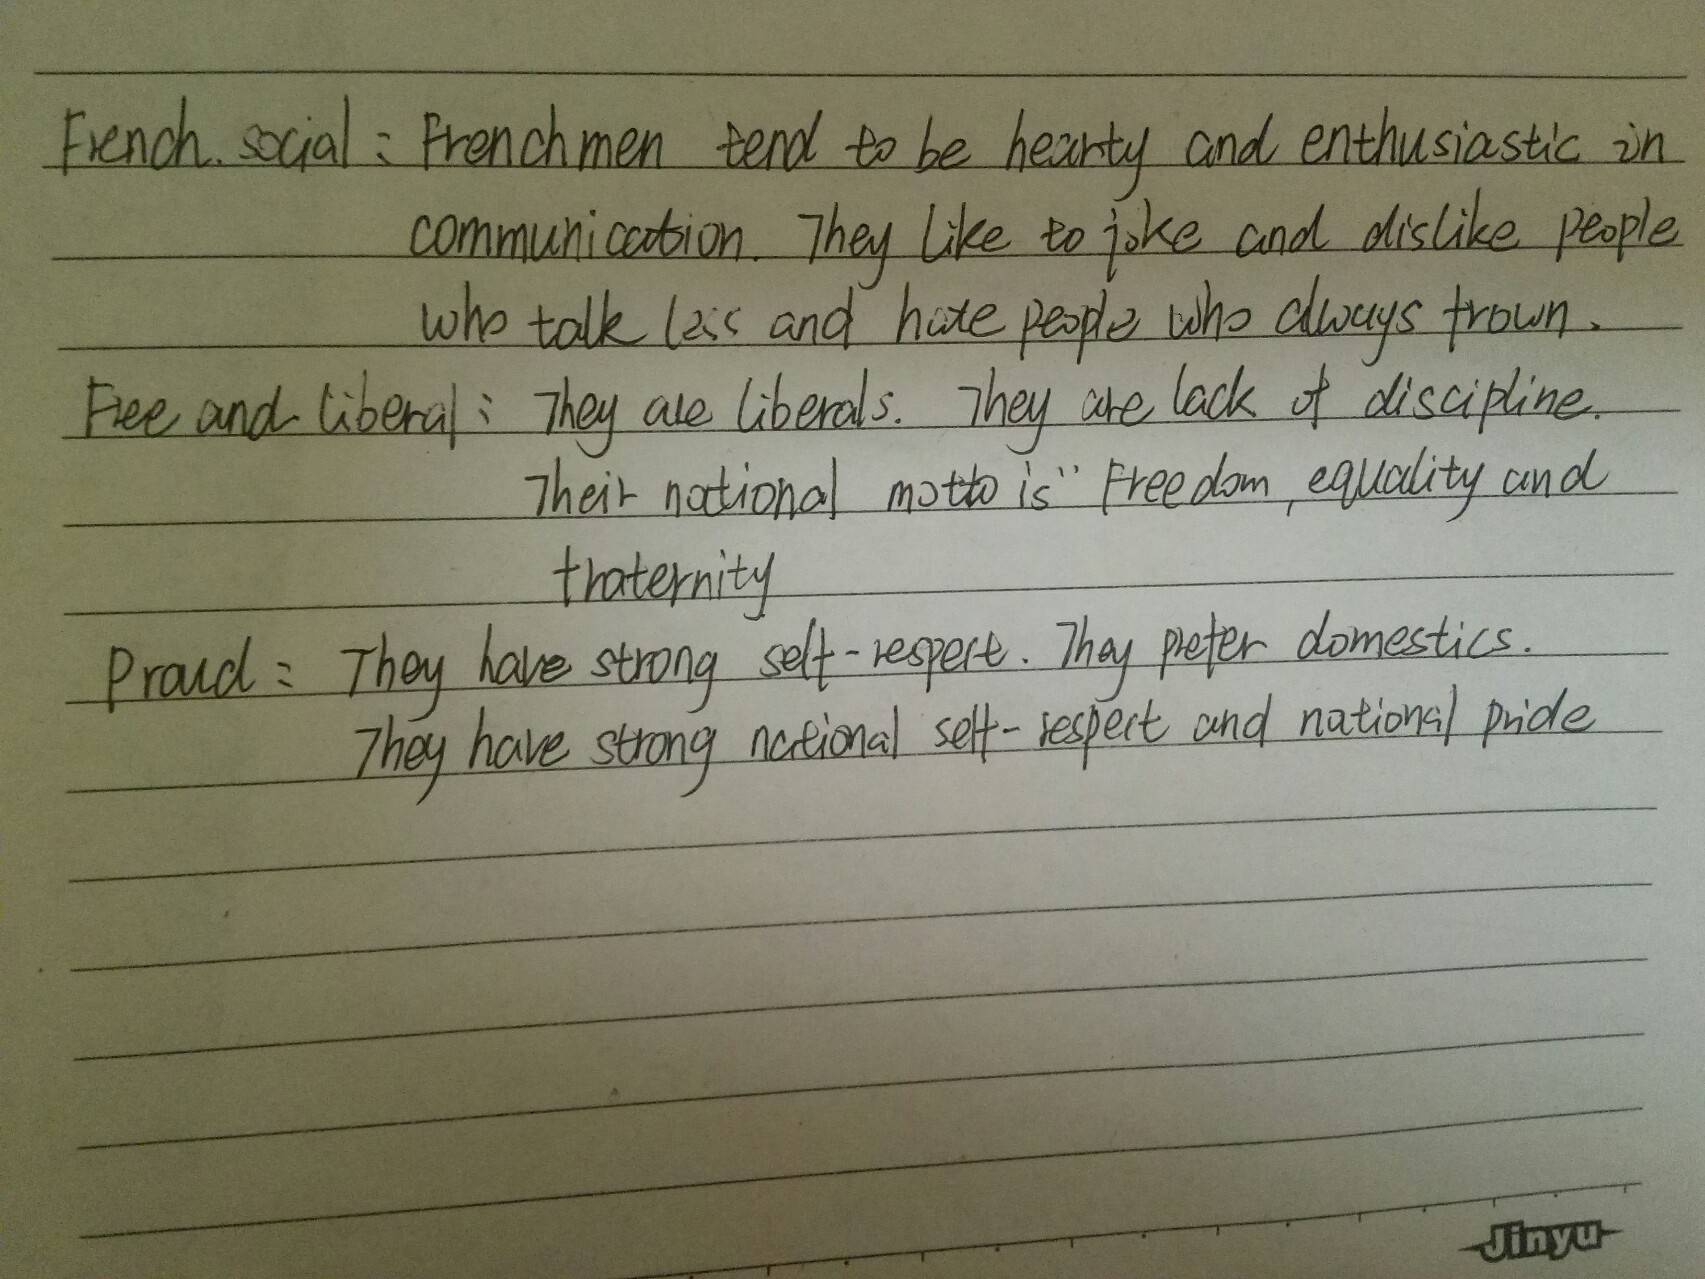 French. social: Frenchmen tend to be hearty and enthusiastic in
communication. They like to joke and dislike people
who talk less and hate people who always frown.
Free and liberal: They are liberals. They are lack of discipline.
Their national motto is "Freedom, equality and
fraternity
Proud: They have strong self-respect. They prefer domestics.
They have strong national self-respect and national pride
Jinyu